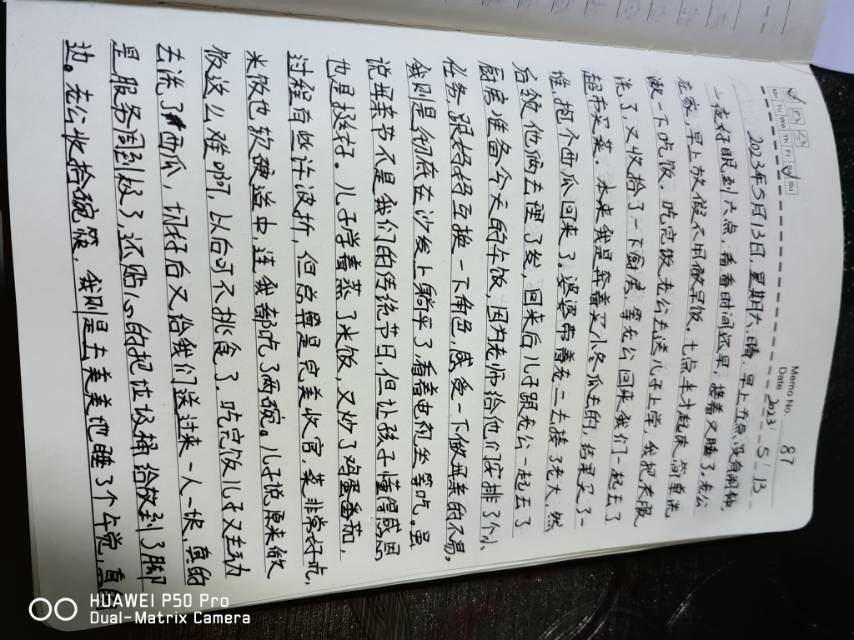 Memo No. 87
Date 2023 . 5 . 13
Mo Tu We Th Fr Sa Su
2023年5月13日 星期六 晴 早上五点,没有闹钟
一夜好眠到六点,看看时间还早,接着又睡了,老公
在家,早上放假不用做早饭,七点半才起床,简单洗
漱一下吃饭。吃完饭老公去送儿子上学,我把衣服
洗了,又收拾了一下厨房,等老公回来我们一起去了
超市买菜。本来我是奔着买小冬瓜去的,结果买了一
堆,抱个西瓜回来了。婆婆带着老二去接了老大,然
后领他俩去理了发,回来后儿子跟老公一起去了
厨房准备今天的午饭,因为老师给他们安排了个小
任务,跟妈妈互换一下角色,感受一下做母亲的不易。
我则是彻底在沙发上躺平了,看着电视坐等吃。虽
说母亲节不是我们的传统节日,但让孩子懂得感恩
也是挺好。儿子学着蒸了米饭,又炒了鸡蛋番茄,
过程有些许波折,但总算是完美收官,菜非常好吃,
米饭也软硬适中,连我都吃了两碗。儿子说原来做
饭这么难啊,以后可不挑食了。吃完饭儿子又主动
去洗了西瓜,切好后又给我们送过来一人一块,真的
是服务周到极了,还贴心的把垃圾桶给放到了脚
边。老公收拾碗筷,我则是去美美地睡了个午觉,真的
HUAWEI P50 Pro
Dual-Matrix Camera